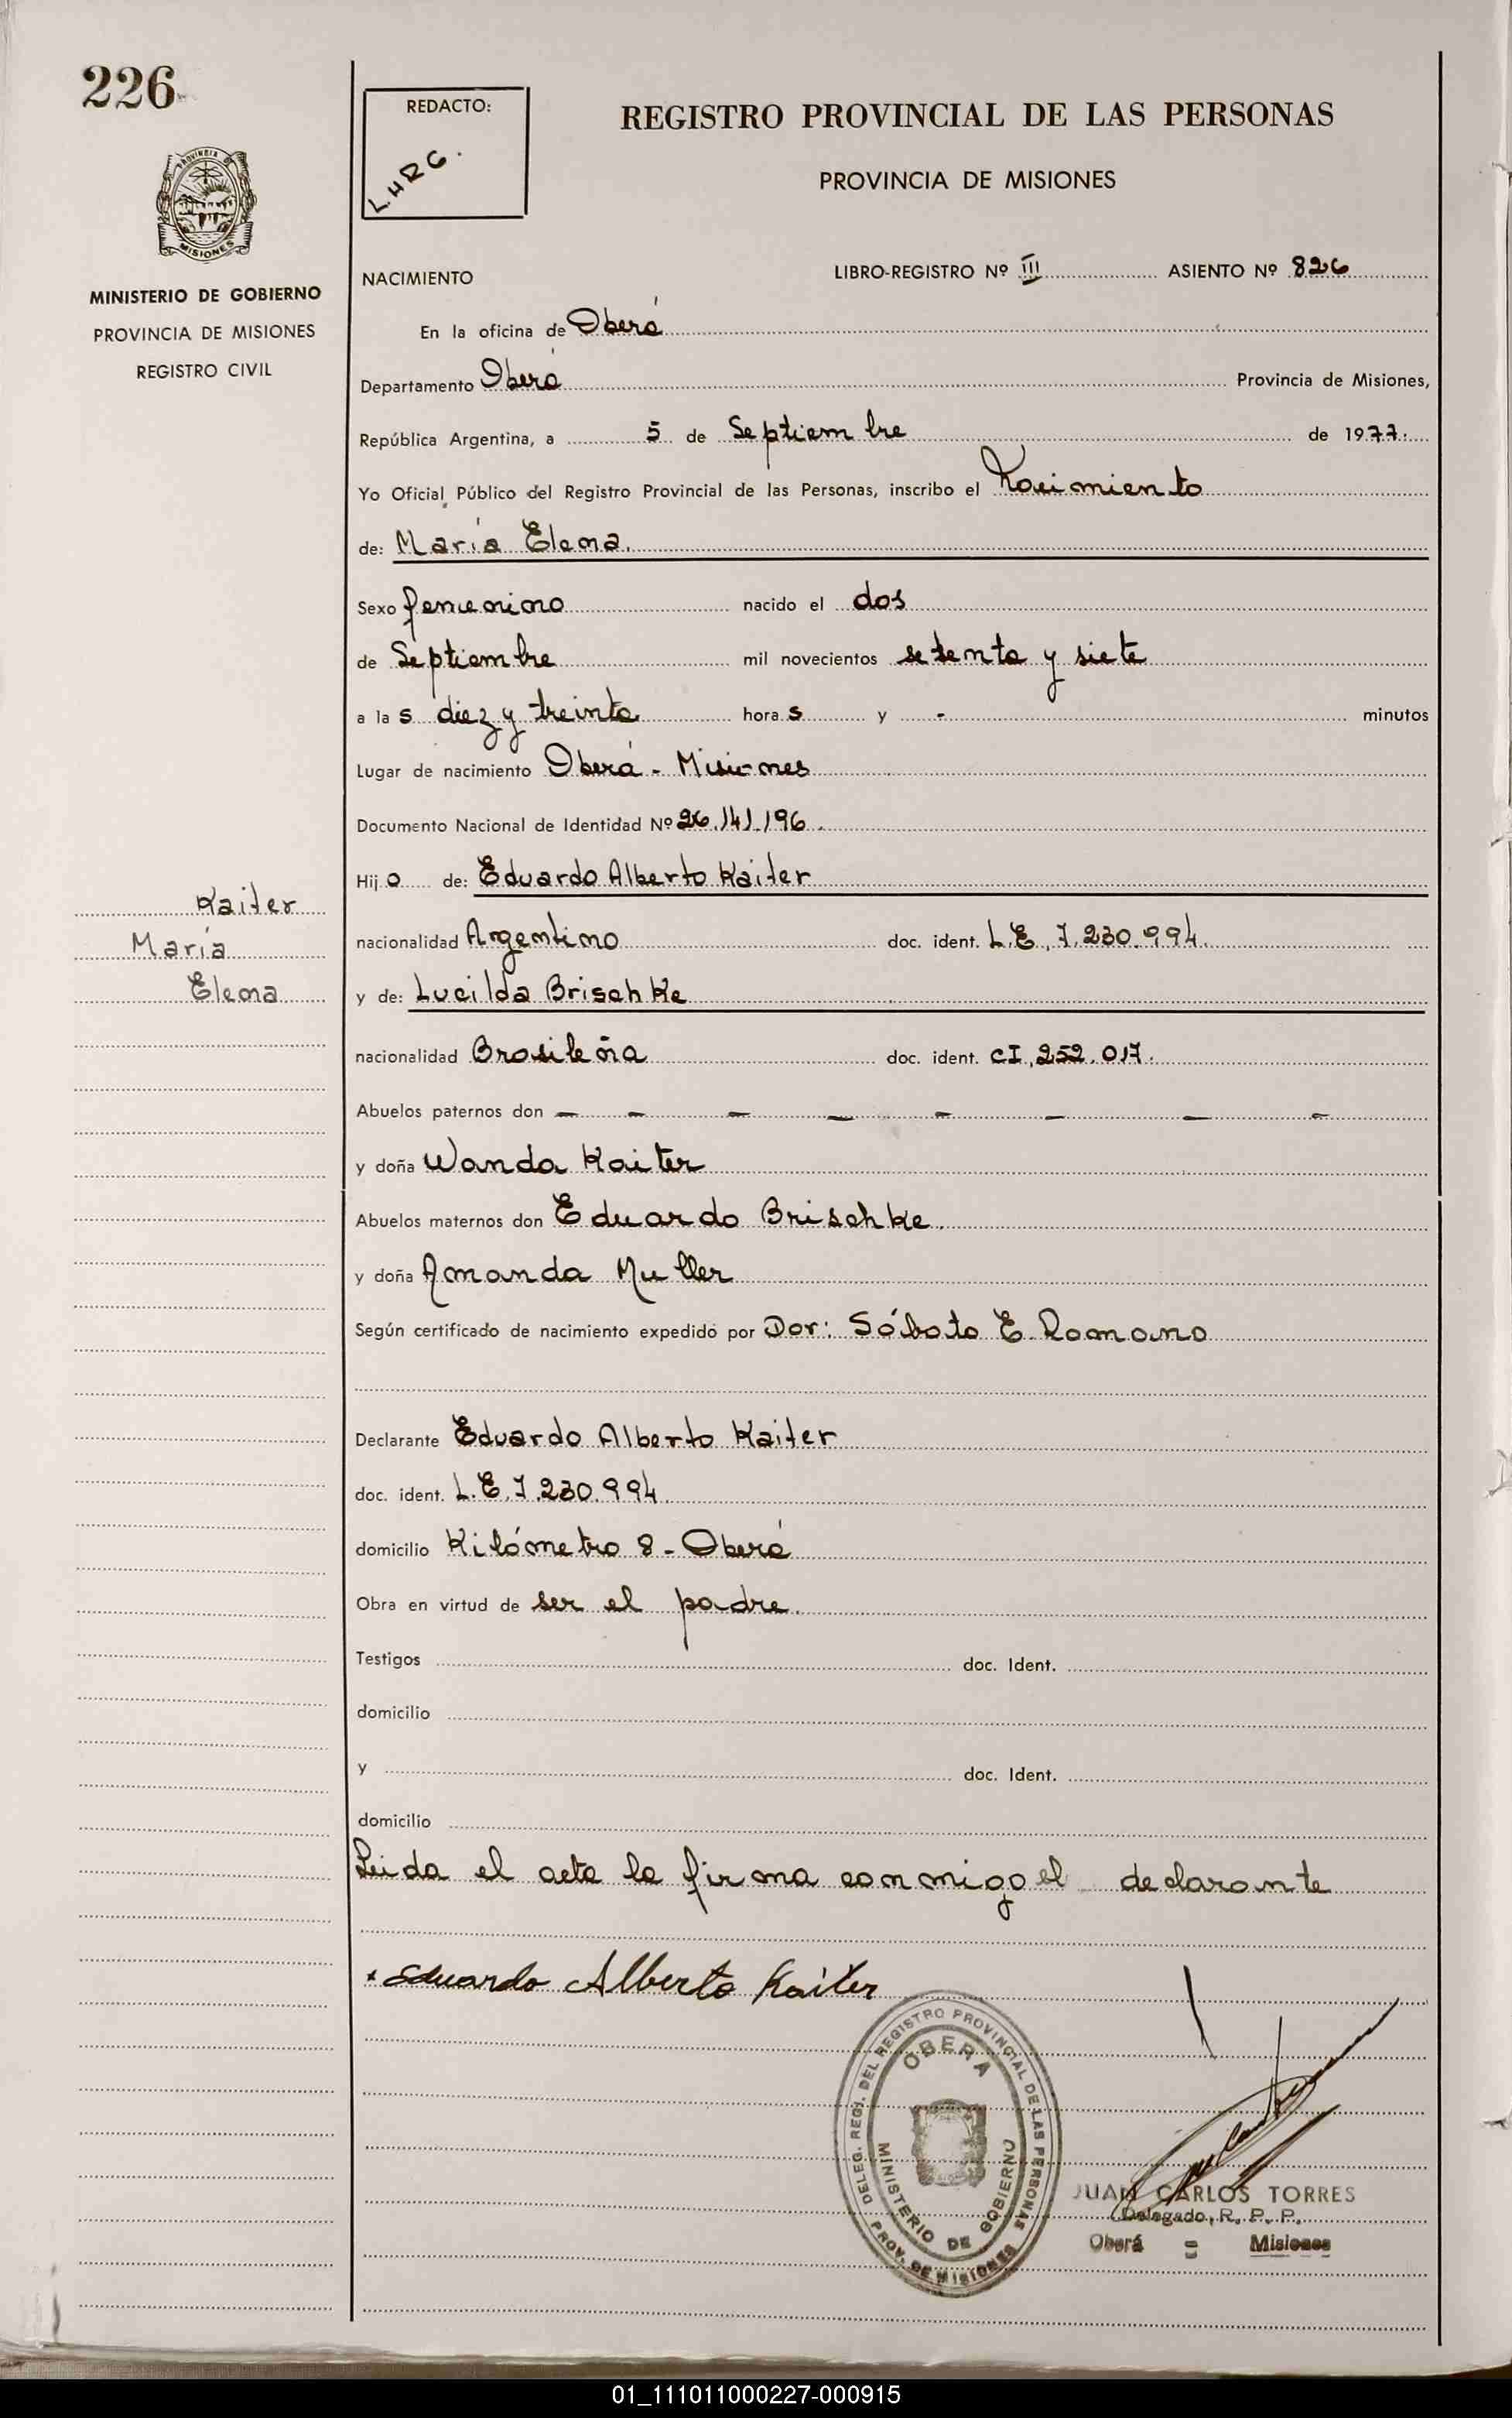 226
REDACTO:
L.H.R.G.
REGISTRO PROVINCIAL DE LAS PERSONAS
PROVINCIA DE MISIONES
PROVINCIA DE
MISIONES
MINISTERIO DE GOBIERNO
PROVINCIA DE MISIONES
REGISTRO CIVIL
NACIMIENTO LIBRO-REGISTRO Nº III ASIENTO Nº 826
En la oficina de Oberá
Departamento Oberá Provincia de Misiones,
República Argentina, a 5 de Septiembre de 1977.
Yo Oficial Público del Registro Provincial de las Personas, inscribo el Nacimiento
de: María Elena.
Sexo femenino nacido el dos
de Septiembre mil novecientos setenta y siete
a las diez y treinta horas y - minutos
Lugar de nacimiento Oberá - Misiones
Documento Nacional de Identidad Nº 26.141.196.
Hijo de: Eduardo Alberto Kaiter
Kaiter
María
Elena
nacionalidad Argentino doc. ident. L.E. 7.230.994.
y de: Lucilda Brischke
nacionalidad Brasileña doc. ident. CI. 252.017.
Abuelos paternos don — — — — — — — —
y doña Wanda Kaiter
Abuelos maternos don Eduardo Brischke.
y doña Amanda Muller
Según certificado de nacimiento expedido por Dor: Sábato E. Romano
Declarante Eduardo Alberto Kaiter
doc. ident. L.E. 7.230.994.
domicilio Kilómetro 8 - Oberá
Obra en virtud de ser el padre.
Testigos doc. Ident.
domicilio
y doc. Ident.
domicilio
Leida el acta la firma conmigo el declarante
Eduardo Alberto Kaiter
DELEG. REGI. DEL REGISTRO PROVINCIAL DE LAS PERSONAS
OBERA
MINISTERIO DE GOBIERNO
PROV. DE MISIONES
JUAN CARLOS TORRES
Delegado, R. P. P.
Oberá = Misiones
01_111011000227-000915